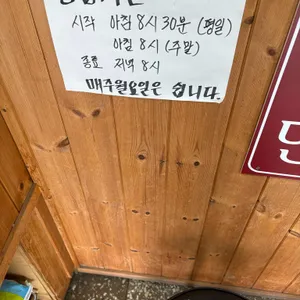 시작 아침 8시 30분 (평일)
아침 8시 (주말)
종료 저녁 8시
매주월요일은 쉽니다.